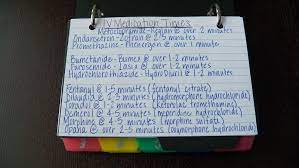 IV Medication Times
Metoclopramide-Reglan @ over 2 minutes
Ondansetron-Zofran @ 2-5 minutes
Promethazine-Phenergan @ over 1 minute
Bumetanide-Bumex @ over 1-2 minutes
Furosemide-Lasix @ over 1-2 minutes
Hydrochlorothiazide-HydroDiuril @ 1-2 minutes
Fentanyl @ 1-5 minutes (fentanyl citrate)
Dilaudid @ 2-5 minutes (hydromorphone hydrochloride)
Toradol @ 1-2 minutes (Ketorolac tromethamine)
Demerol @ 4-5 minutes (meperidine hydrochloride)
Morphine @ 4-5 minutes (morphine sulfate)
Opana @ over 2-5 minutes (oxymorphone hydrochloride)